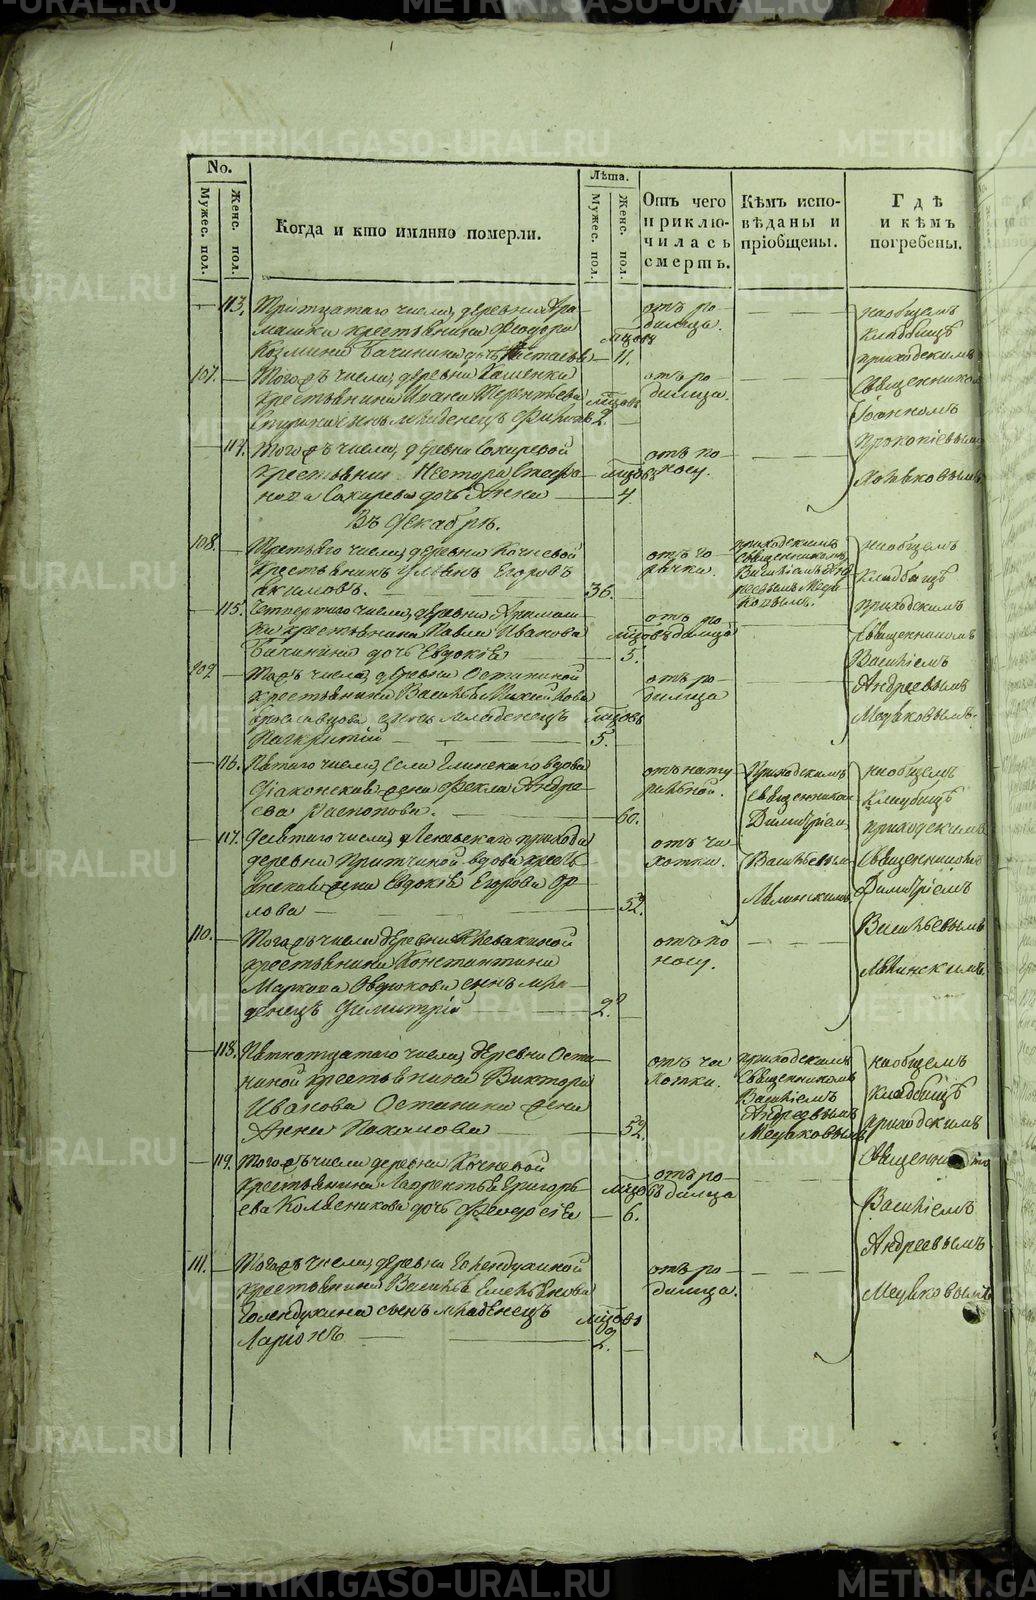 METRIKI.GASO-URAL.RU
No.
Мужес. пол.
Женс. пол.
Когда и кто имянно померли.
Лѣта.
Мужес. пол.
Женс. пол.
Отъ чего
приклю-
чилась
смерть.
Кѣмъ испо-
вѣданы и
пріобщены.
Гдѣ
и кѣмъ
погребены.
113. Тритцатаго числа, деревни Ара-
машки крестьянина Феодора
Козмина Бачинина дочь
мцовъ
11.
отъ ро
димца.
на общемъ
кладбищѣ
приходскимъ
священникомъ
Іоанномъ
Прокопіевымъ
107. Тогожъ числа, деревни
крестьянина Ивана Терентьева
сынъ младенецъ
мцовъ
2.
отъ ро
димца.
114. Тогожъ числа, деревни Сохаревой
крестьянина Нестора Стефа
нова Сохарева дочь Анна
мцовъ
4
отъ по
носу.
Въ Декабрѣ.
108. Третьяго числа, деревни Кочневой
крестьянинъ Ульянъ Егоровъ
Акимовъ.
36.
отъ го
рячки.
приходскимъ
священникомъ
Василіемъ Анд
реевымъ
на общемъ
кладбищѣ
приходскимъ
священникомъ
Василіемъ
Андреевымъ
115. Четвертаго числа, деревни Арамаш
ки крестьянина Павла Иванова
Бачинина дочь Евдокія
мцовъ
5.
отъ ро
димца
109 Тогожъ числа, деревни Останиной
крестьянина Василья Михайлова
сынъ младенецъ
Панкратій
мцовъ
5.
отъ ро
димца
116. Пятаго числа, села Глинскаго вдова
Діаконская жена Фекла Андре
ева Распопова.
60.
отъ нату
ральной.
Приходскимъ
священникомъ
Димитріемъ
Васильевымъ
Лявинскимъ.
на общемъ
кладбищѣ
приходскимъ
священникомъ
Димитріемъ
Васильевымъ
Лявинскимъ.
117. Девятаго числа, Леневскаго прихода
деревни Притчиной вдова кресть
янская жена Евдокія Егорова Ор
лова
52.
отъ ча
хотки.
110. Тогожъ числа деревни Клевакиной
крестьянина Константина
Маркова Овдюкова сынъ мла-
денецъ Димитрій
2
отъ по
носу.
118. Пятнатцатаго числа, деревни Оста-
ниной крестьянина Виктора
Иванова Останина жена
Анна Пахомова
52.
отъ ча
хотки.
приходскимъ
священникомъ
Василіемъ
Андреевымъ
на общемъ
кладбищѣ
приходскимъ
Василіемъ
Андреевымъ
119. Тогожъ числа деревни Кочневой
крестьянина Лаврентья Григорь
ева Колясникова дочь Феодосія
6.
отъ ро-
димца
111. Тогожъ числа, деревни Голендухиной
крестьянина Василья Емельянова
Голендухина сынъ младенецъ
Ларіонъ
мцовъ
2.
отъ ро-
димца.